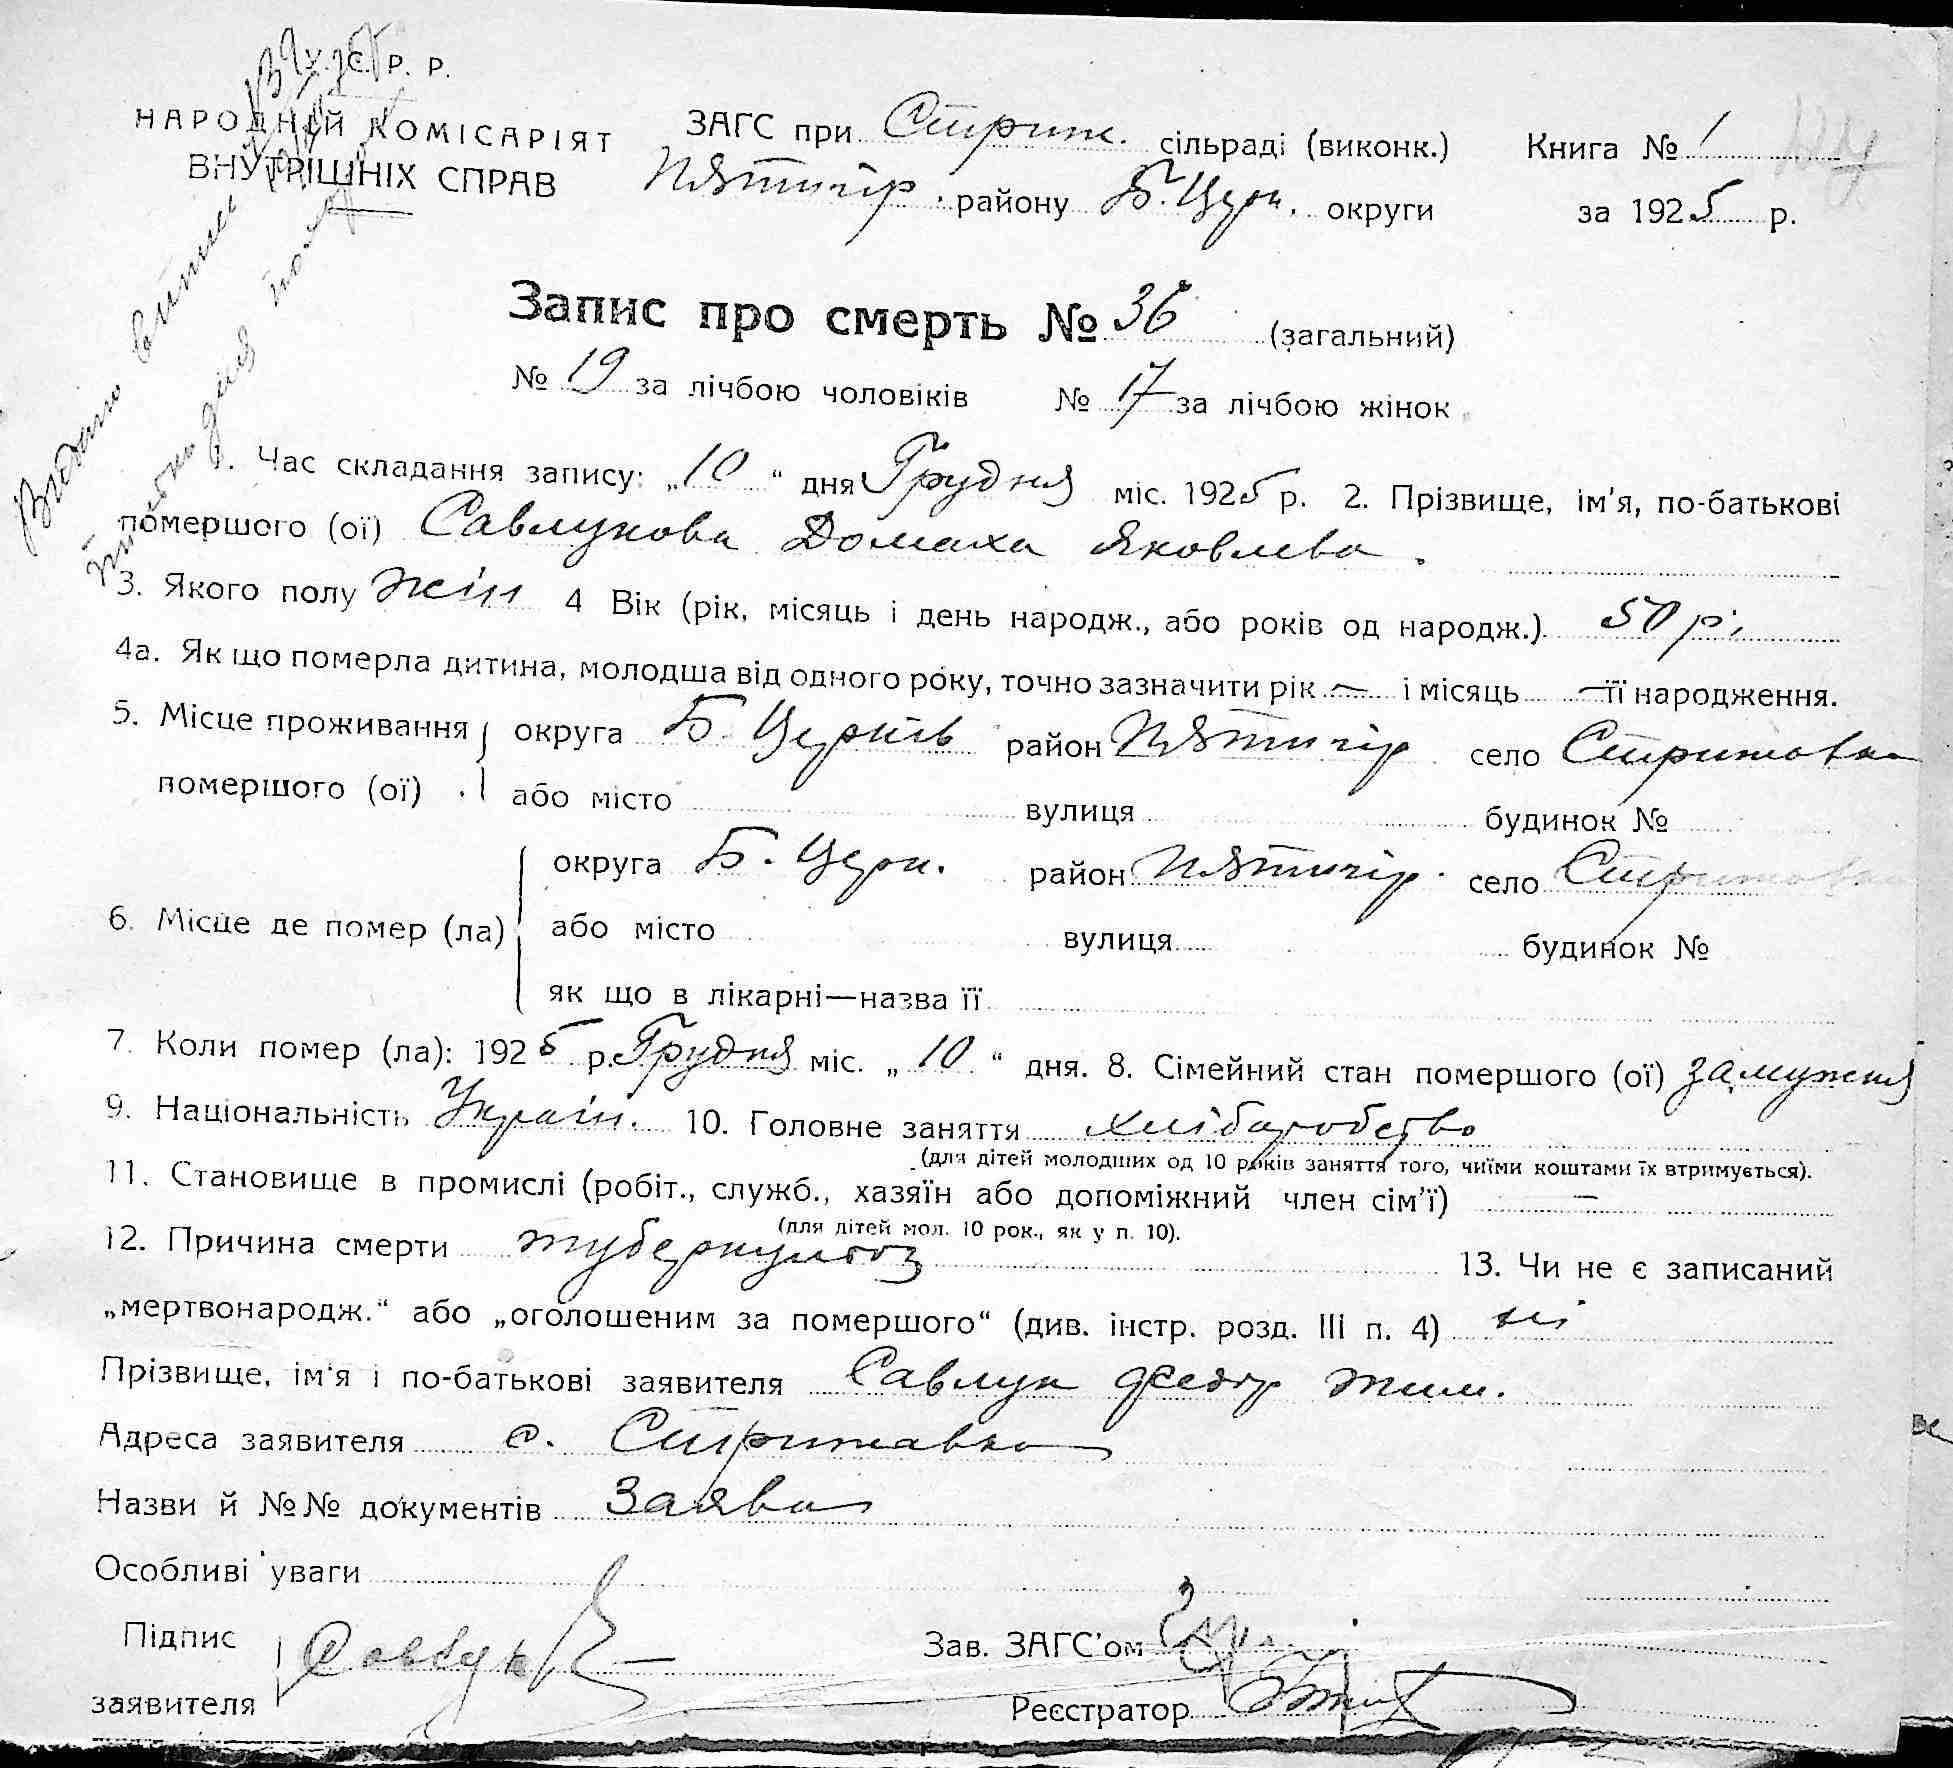 У. С. Р. Р.
НАРОДНІЙ КОМІСАРІЯТ
ВНУТРІШНІХ СПРАВ
ЗАГС при Стриж. сільраді (виконк.) Книга № 1
Пятигір. району Б. Церк. округи за 1925 р.
Видано витяг
Запис про смерть № 36 (загальний)
№ 19 за лічбою чоловіків № 17 за лічбою жінок
1. Час складання запису: „10“ дня Грудня міс. 1925 р. 2. Прізвище, ім'я, по-батькові
помершого (ої) Савлукова Домаха Яковлева.
3. Якого полу жін 4 Вік (рік, місяць і день народж., або років од народж.) 50 р.
4а. Як що померла дитина, молодша від одного року, точно зазначити рік — і місяць — її народження.
5. Місце проживання округа Б. Церків район Пятигір село Стрижавка
помершого (ої) або місто вулиця будинок №
округа Б. Церк. район Пятигір. село Стрижавка
6. Місце де помер (ла) або місто вулиця будинок №
як що в лікарні—назва її
7. Коли помер (ла): 1925 р. Грудня міс. „10“ дня. 8. Сімейний стан помершого (ої) замужня
9. Національність Украін. 10. Головне заняття хліборобство
(для дітей молодших од 10 років заняття того, чиїми коштами їх втримується).
11. Становище в промислі (робіт., служб., хазяїн або допоміжний член сім'ї) —
(для дітей мол. 10 рок., як у п. 10).
12. Причина смерти туберкульоз 13. Чи не є записаний
„мертвонародж.“ або „оголошеним за помершого“ (див. інстр. розд. III п. 4) ні
Прізвище, ім'я і по-батькові заявителя Савлук Федор Тим.
Адреса заявителя с. Стрижавка
Назви й №№ документів Заява
Особливі уваги
Підпис
заявителя Савлук
Зав. ЗАГС'ом
Реєстратор